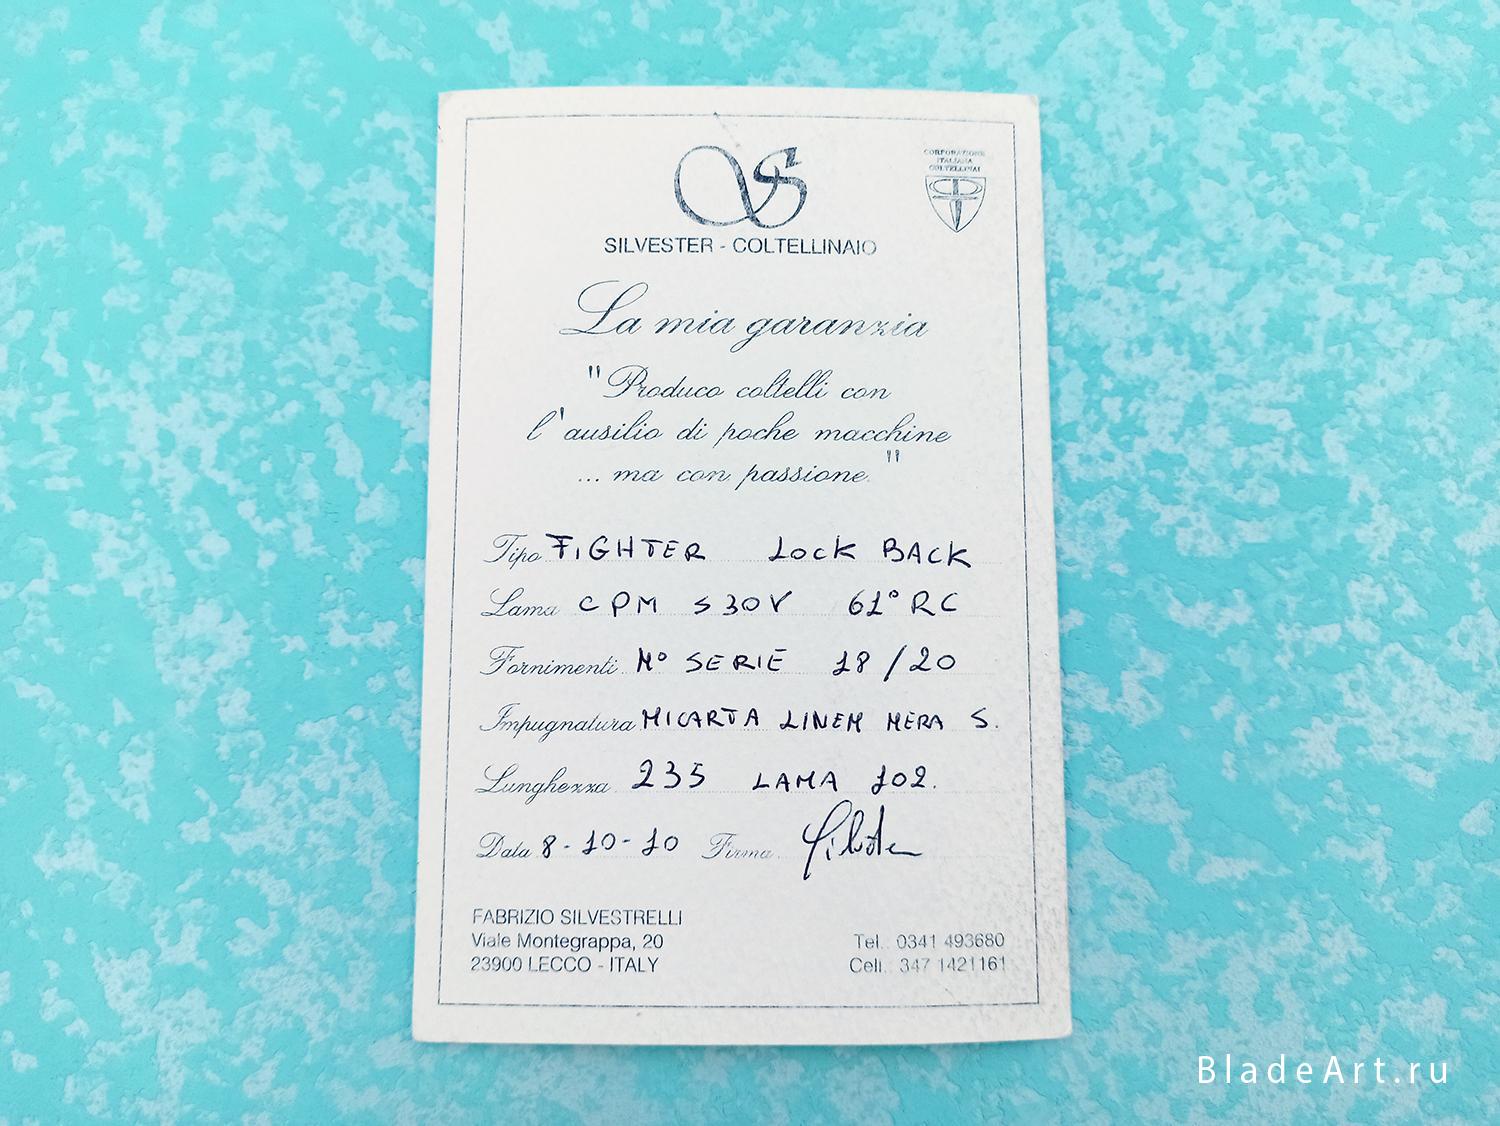 CORPORAZIONE
ITALIANA
COLTELLINAI
SILVESTER - COLTELLINAIO
La mia garanzia
"Produco coltelli con
l'ausilio di poche macchine
... ma con passione."
Tipo FIGHTER LOCK BACK
Lama CPM S30V 61° RC
Fornimenti N° SERIE 18/20
Impugnatura MICARTA LINEN NERA S.
Lunghezza 235 LAMA 102.
Data 8-10-10 Firma Silvester
FABRIZIO SILVESTRELLI
Viale Montegrappa, 20
23900 LECCO - ITALY
Tel.: 0341 493680
Cell.: 347 1421161
BladeArt.ru